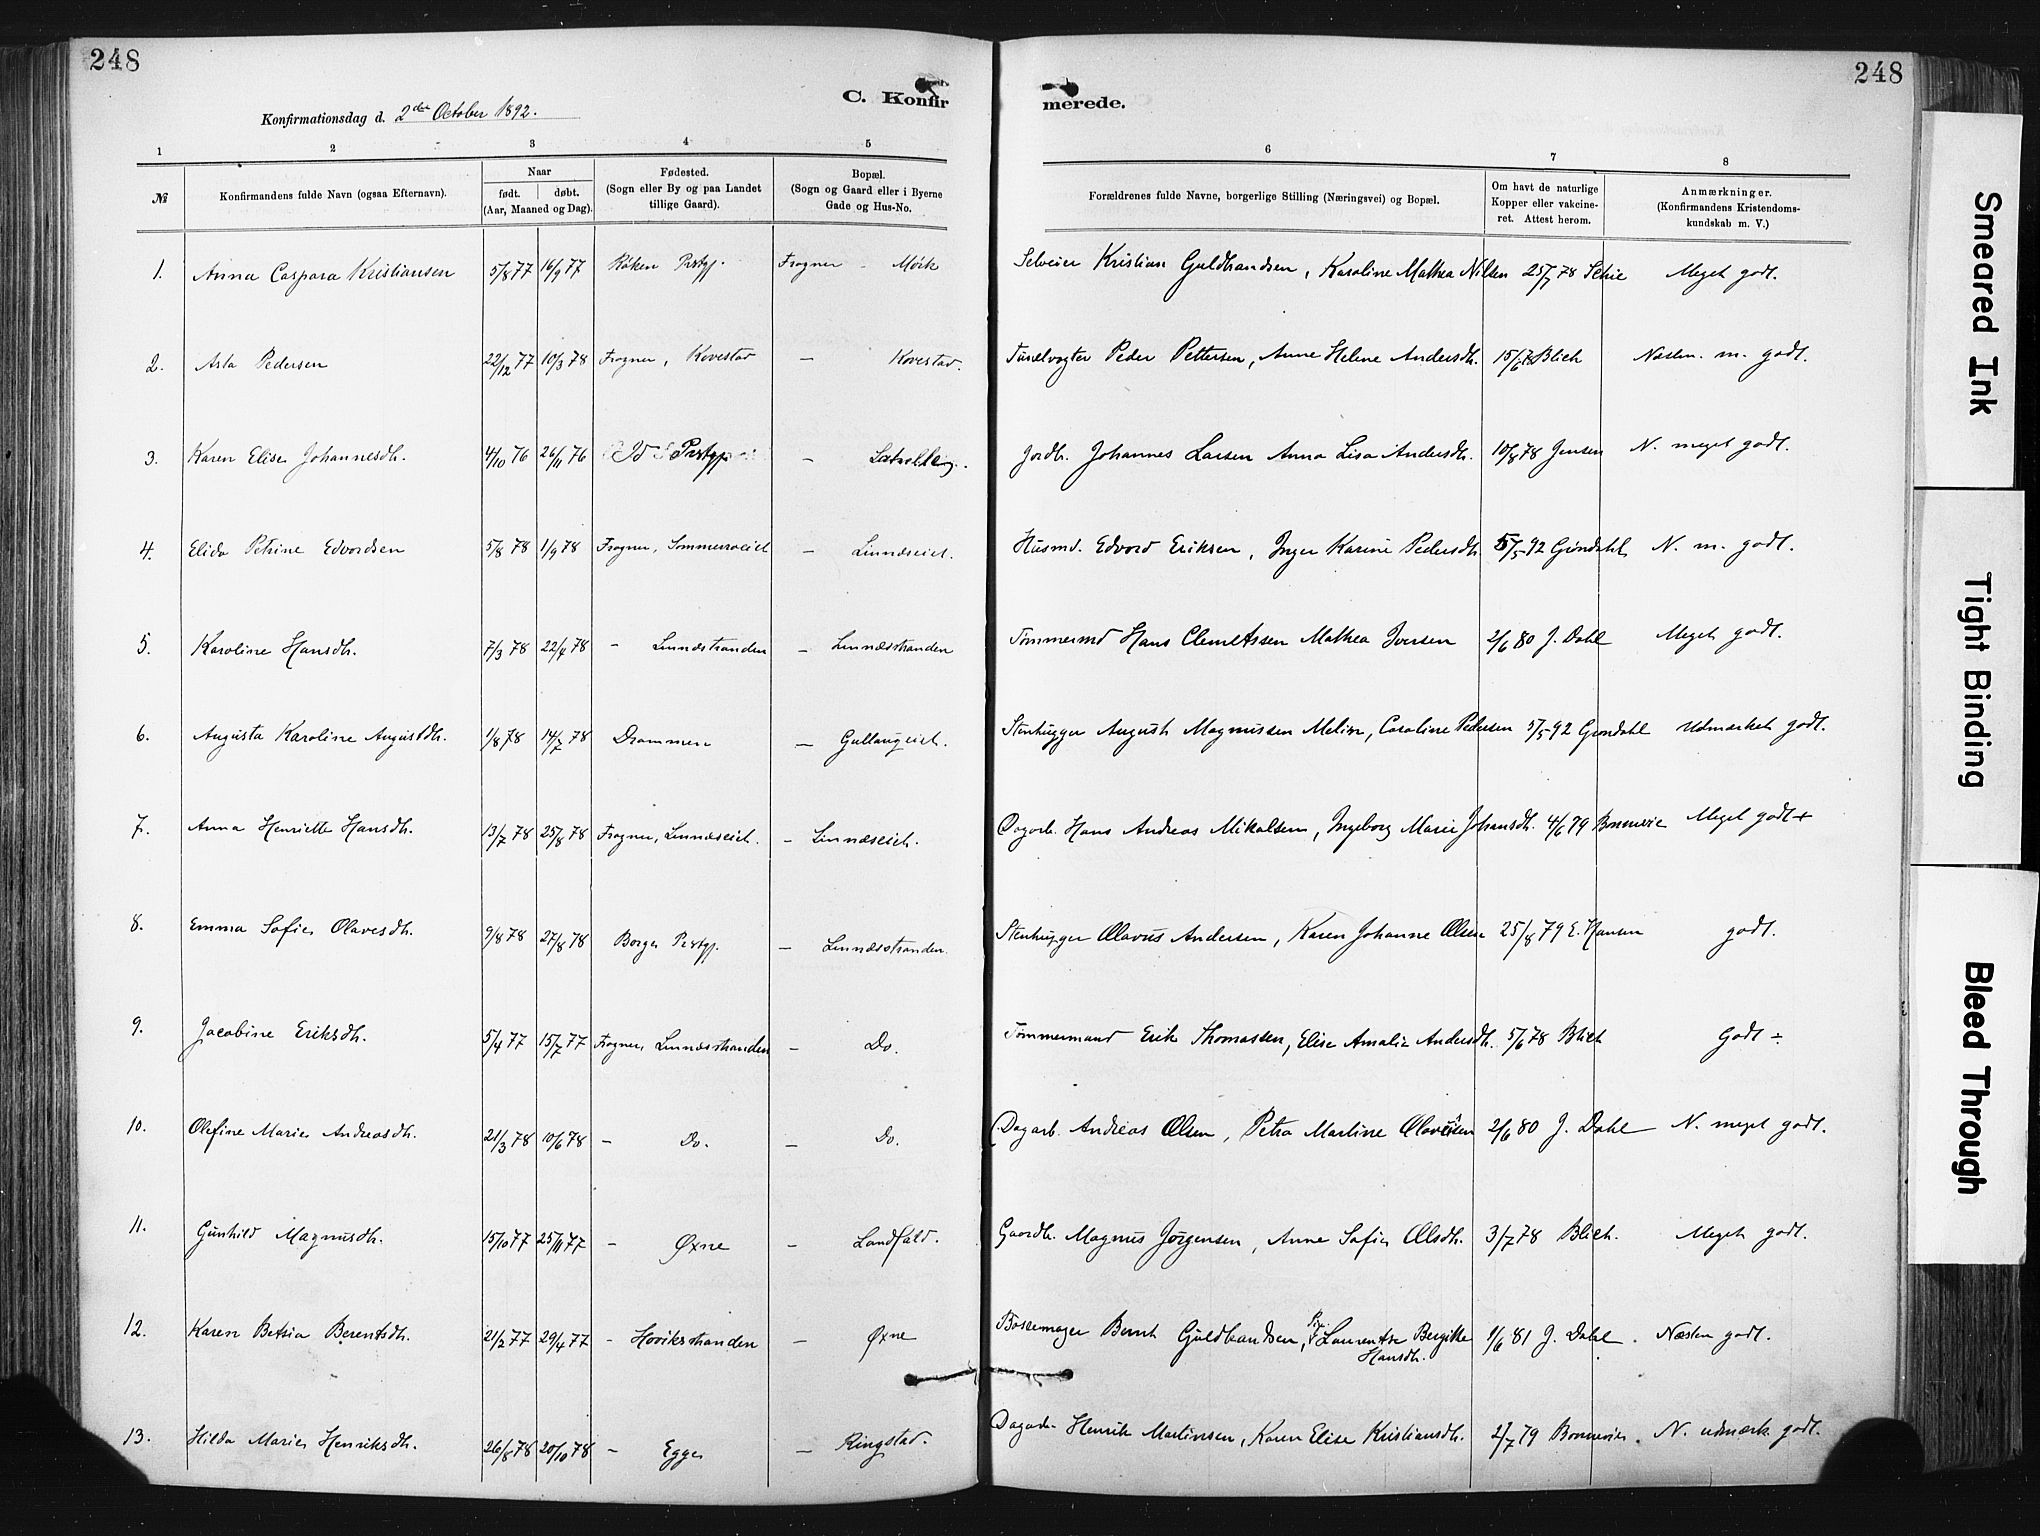 248
248
C. Konfir merede.
Konfirmationsdag d. 2den October 1892.
1 2 3 4 5 6 7 8
№ Konfirmandens fulde Navn (ogsaa Efternavn). Naar født. døbt. (Aar, Maaned og Dag). Fødested. (Sogn eller By og paa Landet tillige Gaard). Bopæl. (Sogn og Gaard eller i Byerne Gade og Hus-No. Forældrenes fulde Navne, borgerlige Stilling (Næringsvei) og Bopæl. Om havt de naturlige Kopper eller vakcineret. Attest herom. Anmærkninger. (Konfirmandens Kristendomskundskab m. V.)
1. Anna Caspara Kristiansen 5/8 77 16/9 77 Røken Prstgj. Frogner - Mørk Selveier Kristian Guldbrandsen, Karoline Mathea Nilsen 25/7 78 Schie Meget godt.
2. Asta Pedersen 22/12 77 10/3 78 Frogner, Kovestad — Kovestad. Peder Pettersen, Anne Helene Andersdh. 15/6 78 Blich Næsten m. godt.
3. Karen Elise Johannesdh. 4/10 76 26/11 76 Id Prstgj. — Jordb. Johannes Larsen Anna Lisa Andersdh. 10/8 78 Jensen N. meget godt.
4. Elida Petrine Edvardsen 5/8 78 1/9 78 Frogner, Sommerroeiet — Linnæseiet. Husmd. Edvard Eriksen, Inger Karine Pedersdh. 5/5 92 Grøndahl N. m. godt.
5. Karoline Hansdh. 7/3 78 22/4 78 - Linnæsstranden — Linnæsstranden Tømmermd Hans Clemetssen Mathea Iversen 2/6 80 J. Dahl Meget godt.
6. Augusta Karoline Augustdh. 1/8 78 14/7 78 Drammen — Gullaugeiet. Stenhugger August Magnussen Melin, Caroline Pedersen 5/5 92 Grøndahl Udmærket godt.
7. Anna Henriette Hansdh. 13/7 78 25/8 78 Frogner, Linnæseiet. — Linnæseiet. Dagarb. Hans Andreas Mikalsen, Ingeborg Marie Johansdh. 4/6 79 Bonnevie Meget godt +
8. Emma Sofie Olavesdh. 9/8 78 27/8 78 Borge Prstgj. — Linnæsstranden. Stenhugger Olavus Andersen, Karen Johanne Olsen 25/8 79 E. Hansen godt.
9. Jacobine Eriksdh. 5/4 77 15/7 77 Frogner, Linnæsstranden — Do. Tømmermand Erik Thomassen, Elise Amalie Andersdh. 5/6 78 Blich Godt ÷
10. Olefine Marie Andreasdh. 21/3 78 10/6 78 — Do. — Do. Dagarb. Andreas Olsen, Petra Martine Olavesen 2/6 80 J. Dahl N. meget godt.
11. Gunhild Magnusdh. 15/10 77 25/11 77 — Øxne — Landfald. Gaardb. Magnus Jørgensen, Anne Sofie Olsdh. 3/7 78 Blich. Meget godt.
12. Karen Betsia Berentsdh. 21/2 77 29/4 77 - Hoviksstranden — Øxne Børsemager Bernt Guldbrandsen, Laurentse Bergitte Hansdh. 1/6 81 J. Dahl. Næsten godt.
13. Hilda Marie Henriksdh. 26/8 78 20/10 78 — Egge — Ringstad. Dagarb. Henrik Martinsen, Karen Elise Kristiansdh. 2/7 79 Bonnevie. N. udmærk. godt.
Smeared Ink
Tight Binding
Bleed Through